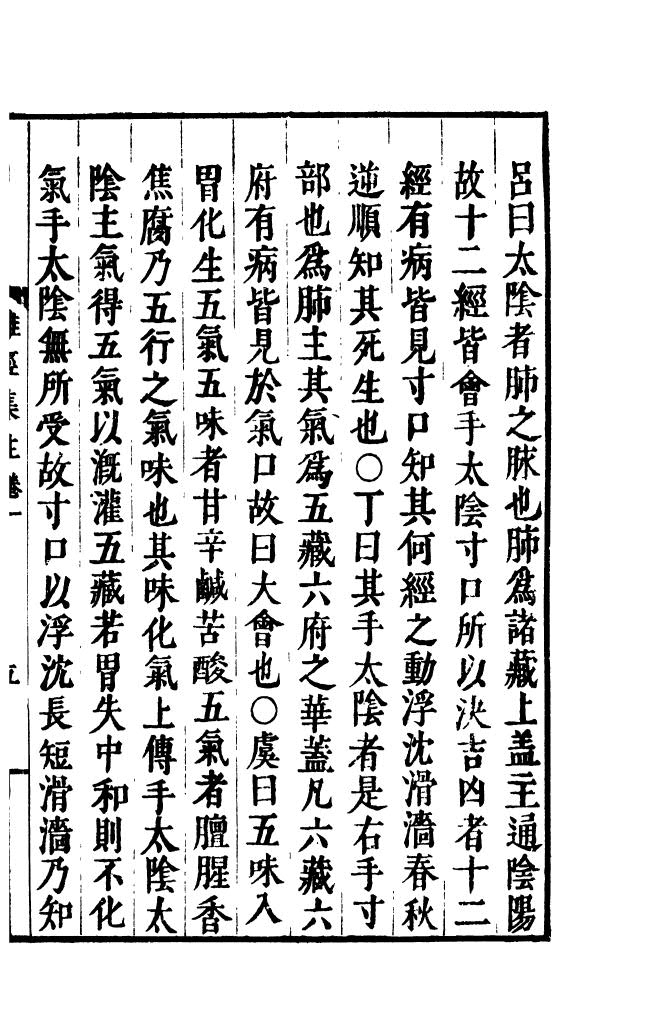 呂曰太陰者肺之脉也肺爲諸藏上盖主通陰陽
故十二經皆會手太陰寸口所以決吉凶者十二
經有病皆見寸口知其何經之動浮沈滑濇春秋
逆順知其死生也○丁曰其手太陰者是右手寸
部也爲肺主其氣爲五藏六府之華蓋凡六藏六
府有病皆見於氣口故曰大會也○虞曰五味入
胃化生五氣五味者甘辛鹹苦酸五氣者膻腥香
焦腐乃五行之氣味也其味化氣上傳手太陰太
陰主氣得五氣以溉灌五藏若胃失中和則不化
氣手太陰無所受故寸口以浮沈長短滑濇乃知
難經集注卷一
五